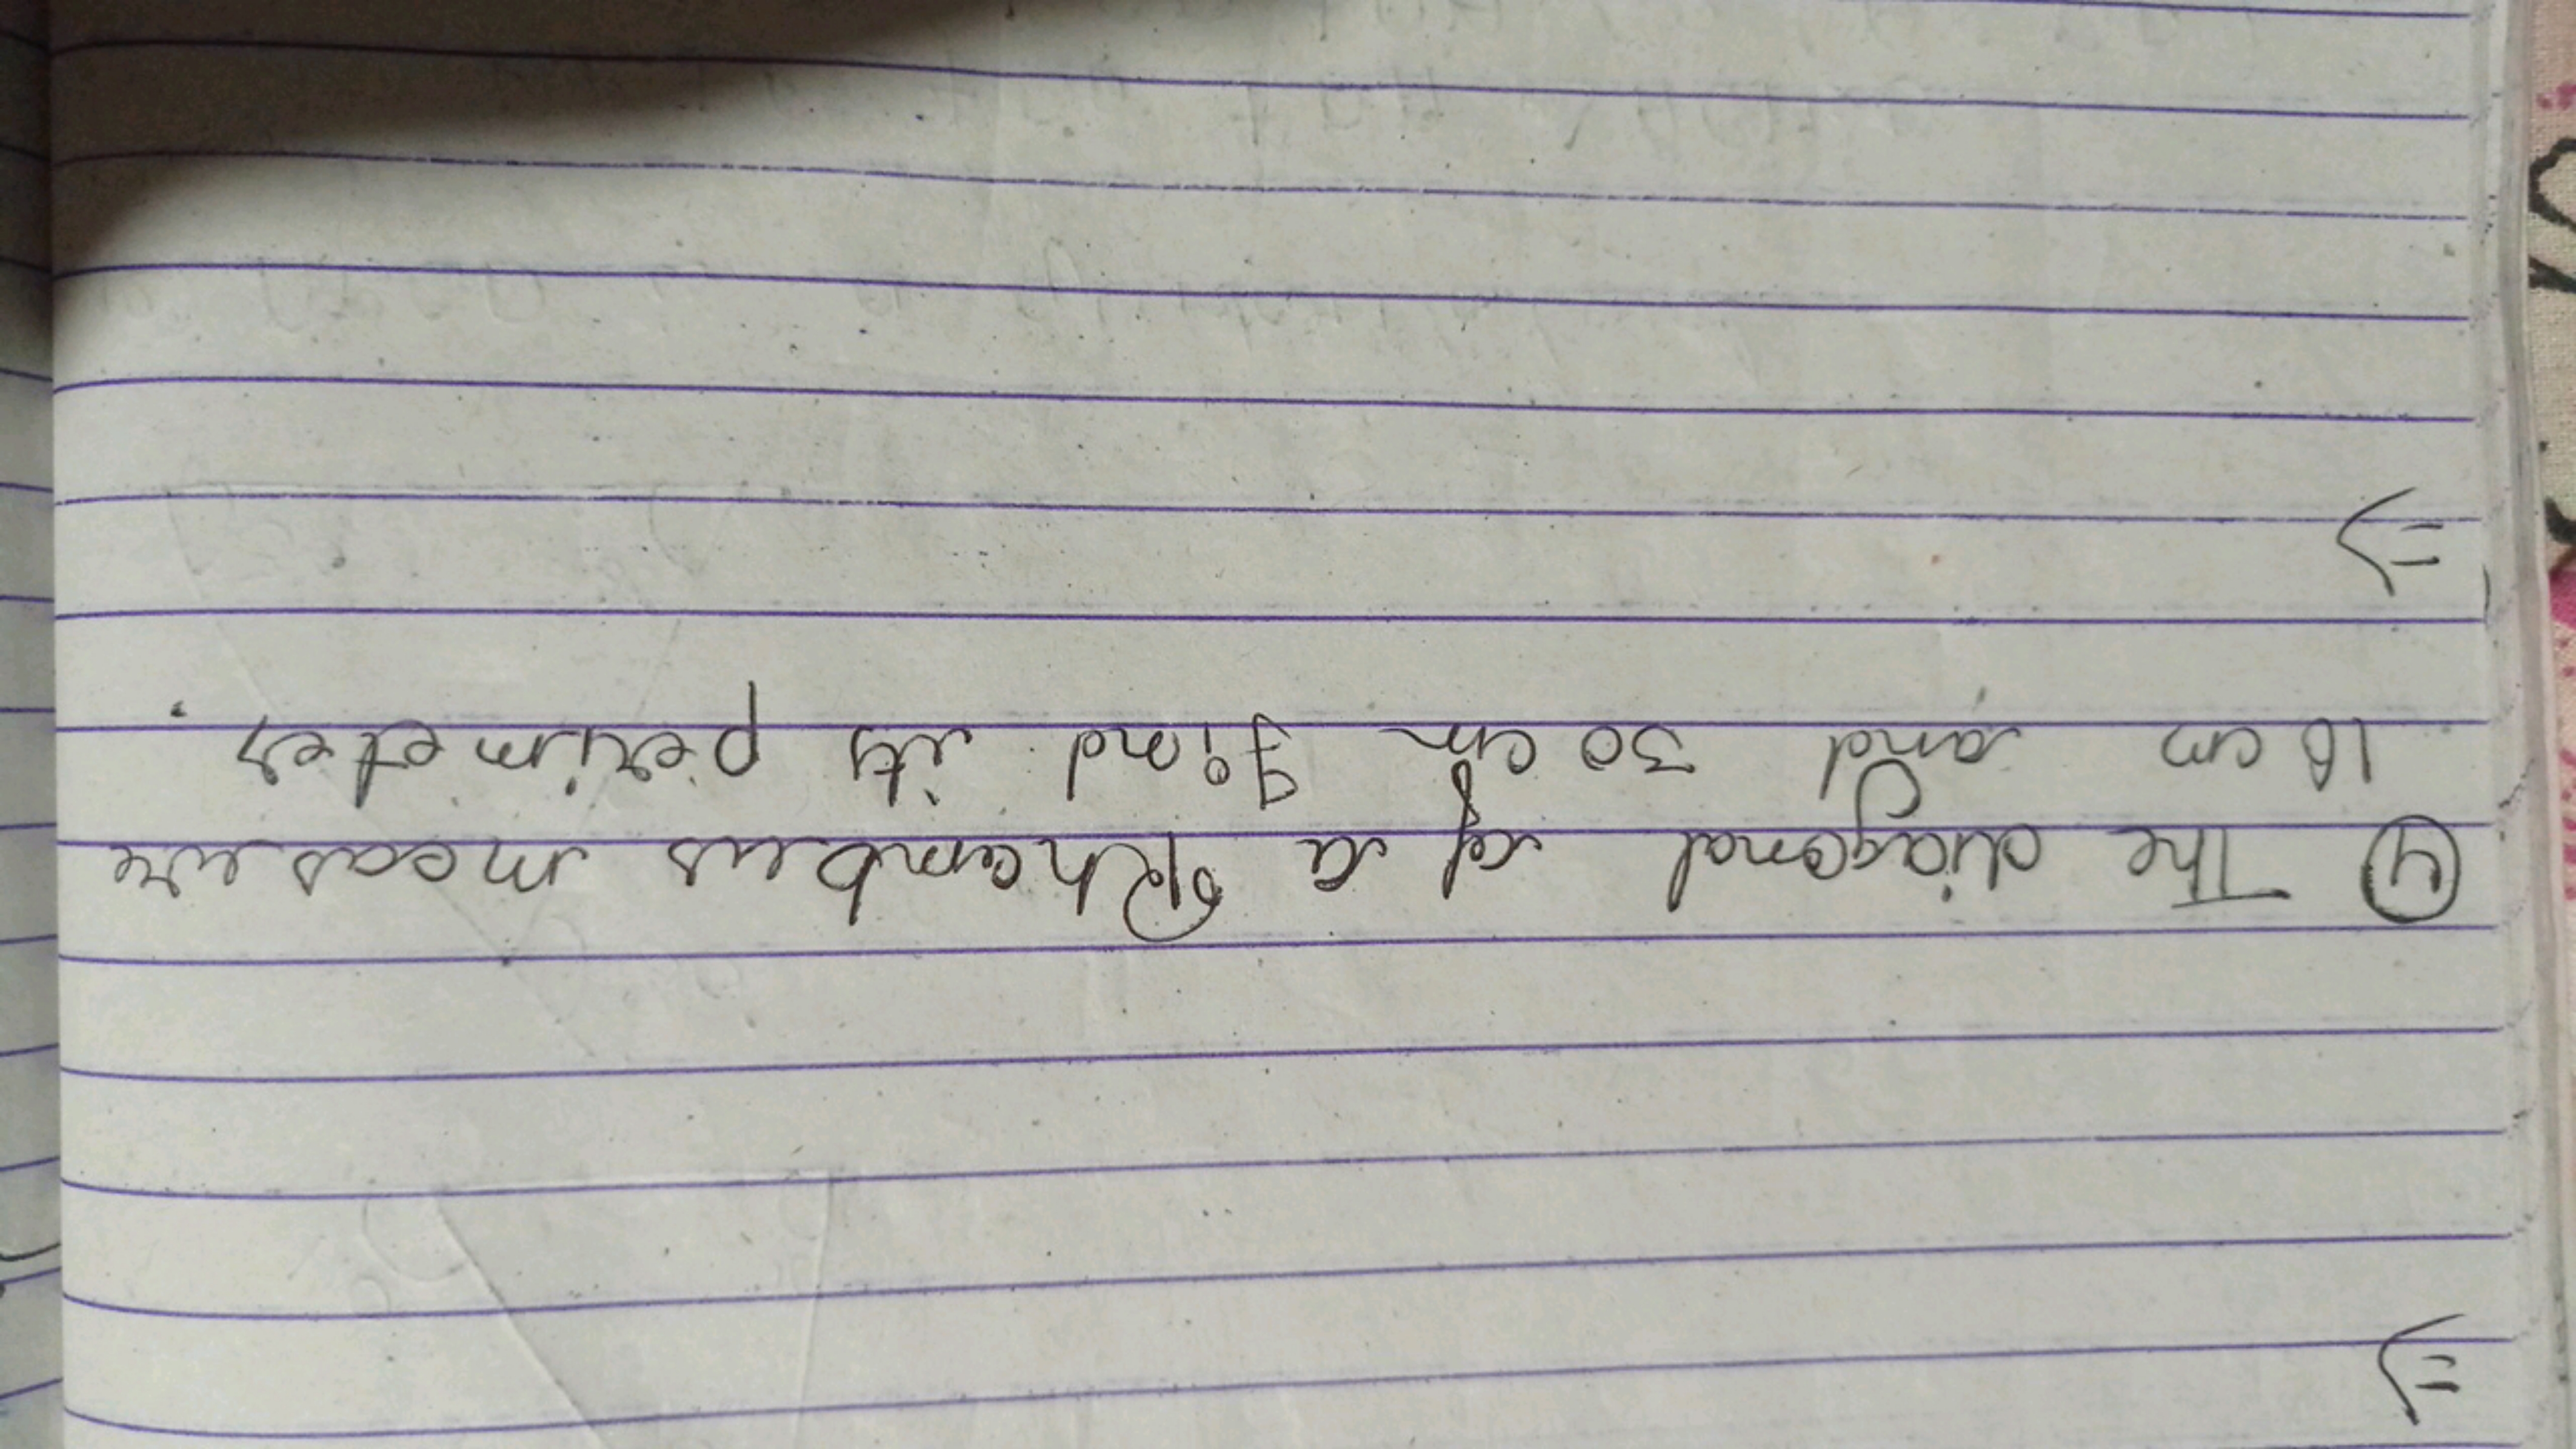 ④ The diagonal of a Rhombus measure
16 cm and 30 cm find its perimeter.
⇒